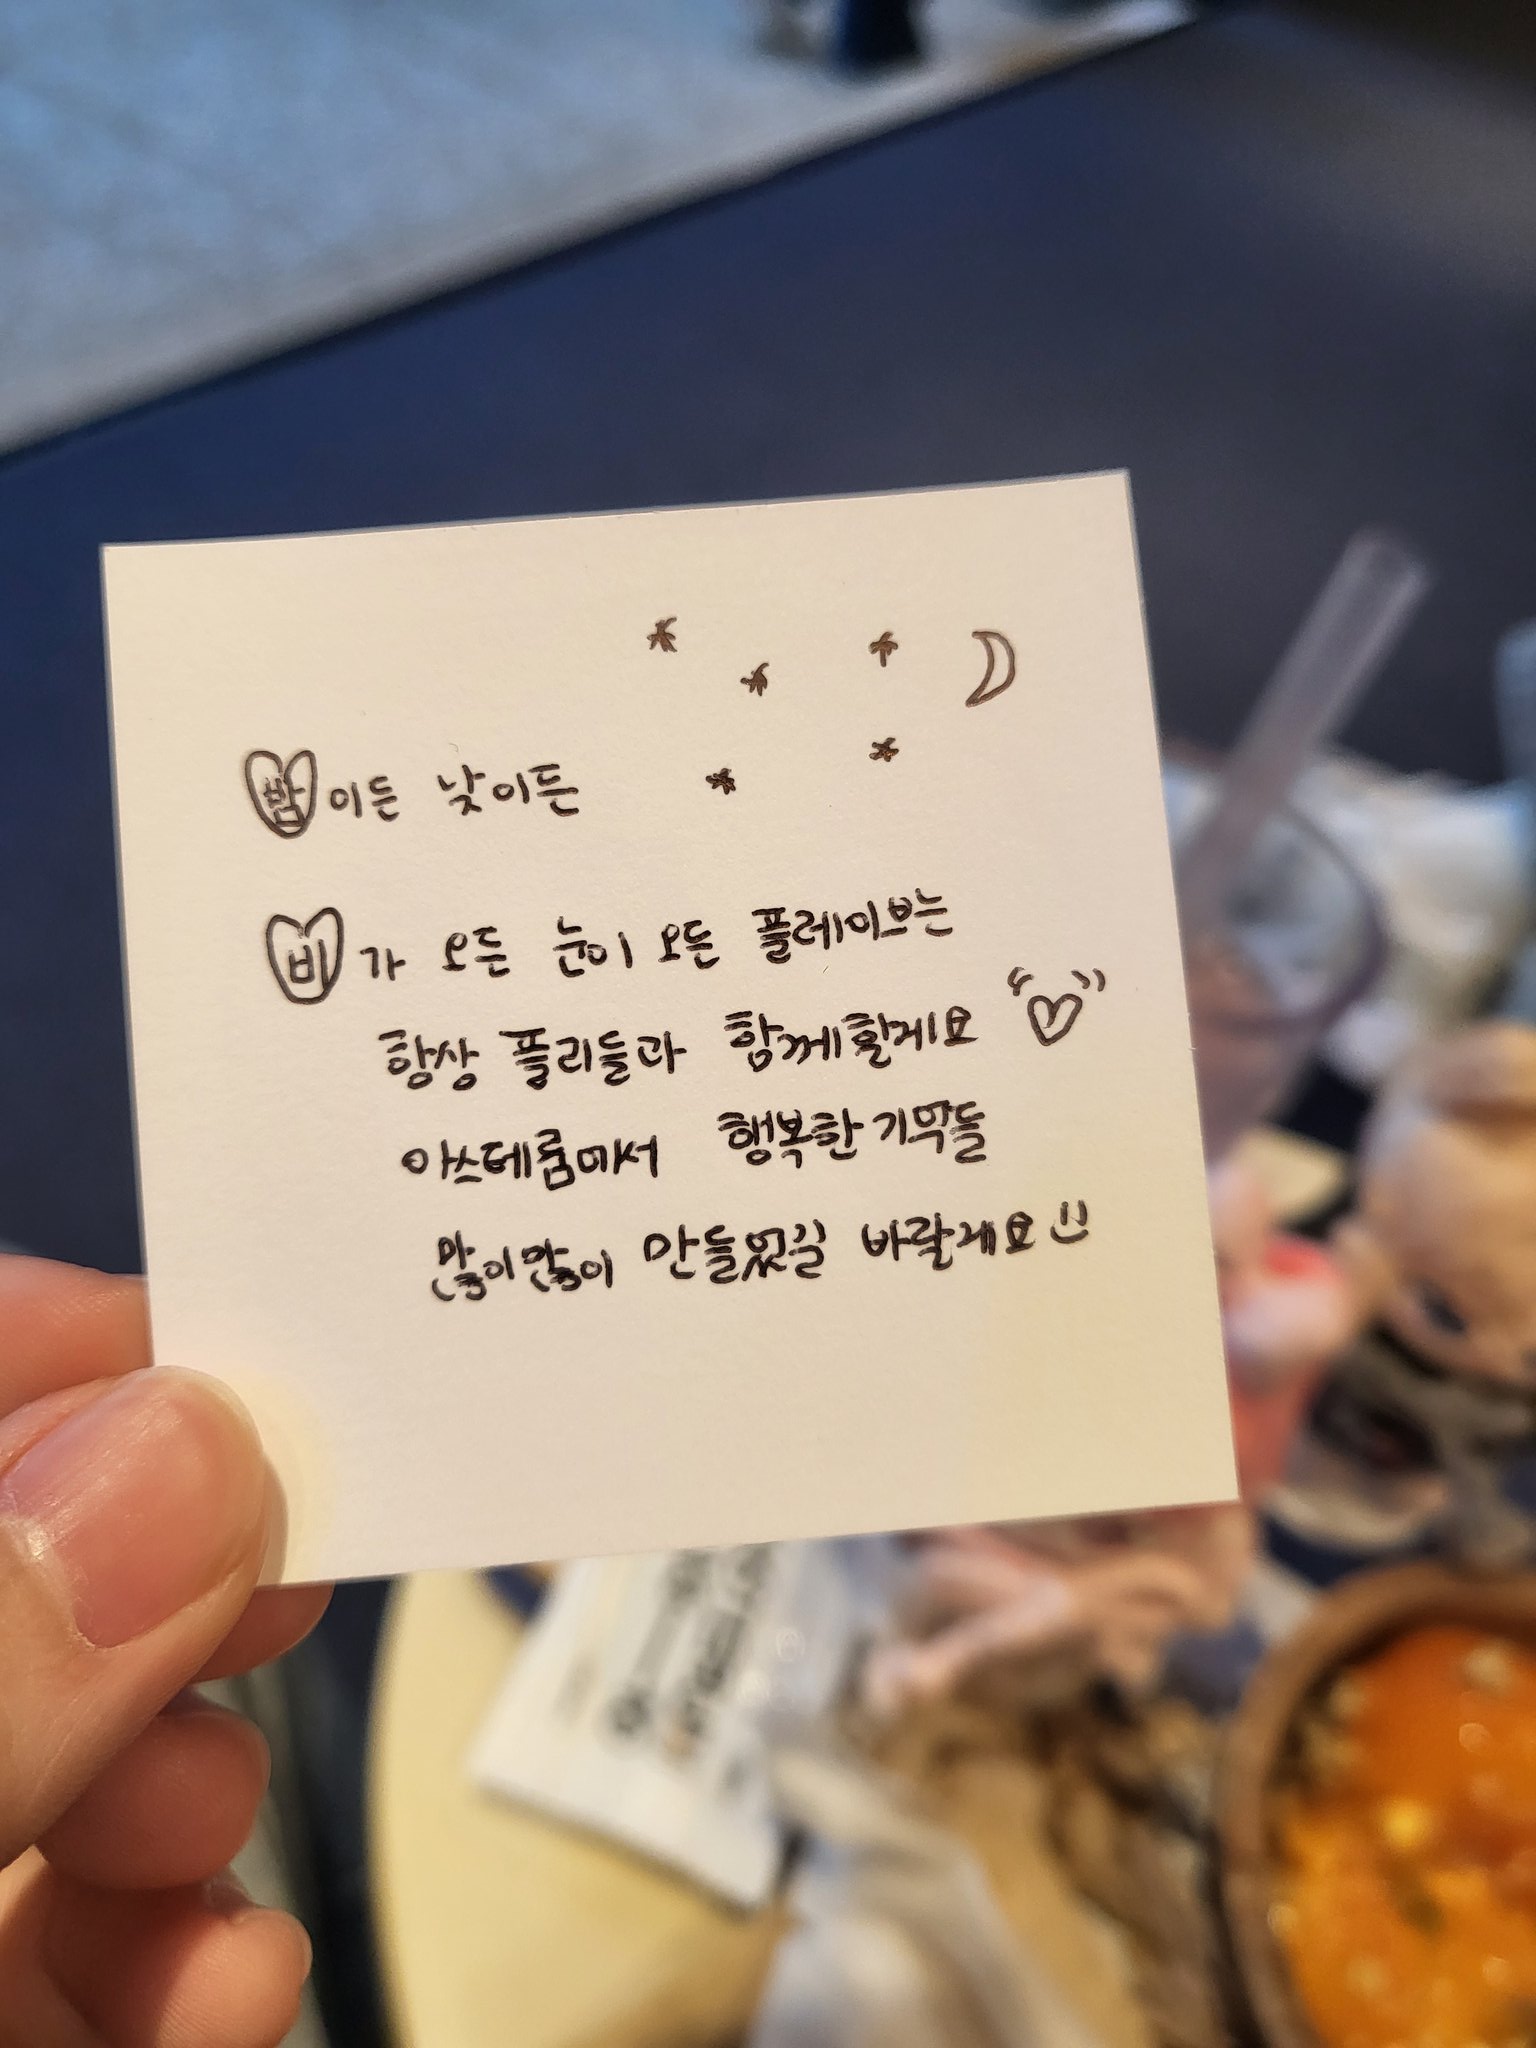 밤이든 낮이든
비가 오든 눈이 오든 플레이브는
항상 플리들과 함께할게요
아스테룸에서 행복한 기억들
많이많이 만들었길 바랄게요